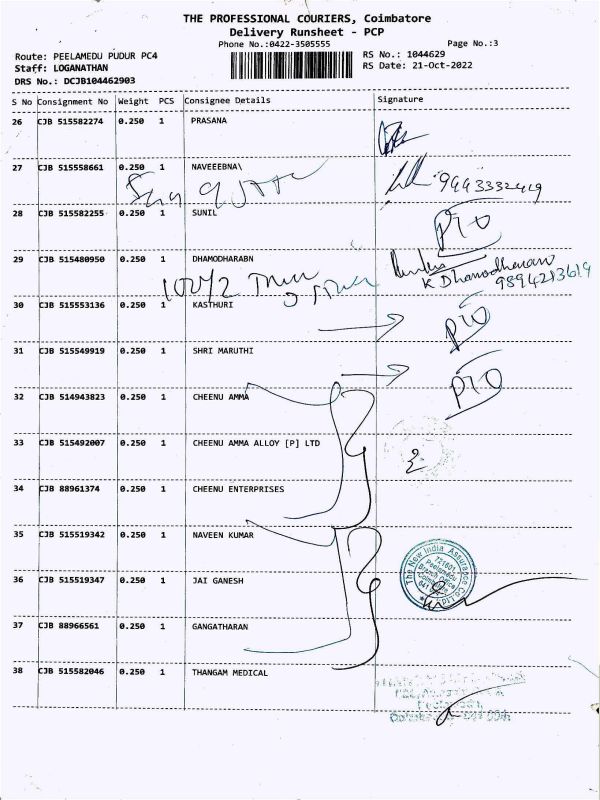 THE PROFESSIONAL COURIERS, Coimbatore
Delivery Runsheet - PCP
Phone No.:0422-3505555
Page No.:3
Route: PEELAMEDU PUDUR PC4
RS No.: 1044629
Staff: LOGANATHAN
RS Date: 21-Oct-2022
DRS No.: DCJB104462903
S No Consignment No Weight PCS Consignee Details Signature
26 CJB 515582274 0.250 1 PRASANA
27 CJB 515558661 0.250 1 NAVEEEBNA\
9443332419
28 CJB 515582255 0.250 1 SUNIL PTO
29 CJB 515480950 0.250 1 DHAMODHARABN
K Dhamodharan
9894213619
30 CJB 515553136 0.250 1 KASTHURI PTO
31 CJB 515549919 0.250 1 SHRI MARUTHI PTO
32 CJB 514943823 0.250 1 CHEENU AMMA
33 CJB 515492007 0.250 1 CHEENU AMMA ALLOY [P] LTD
34 CJB 88961374 0.250 1 CHEENU ENTERPRISES
35 CJB 515519342 0.250 1 NAVEEN KUMAR
The New India Assurance Co. Ltd.
721601
Peelamedu
Branch Office
36 CJB 515519347 0.250 1 JAI GANESH
37 CJB 88966561 0.250 1 GANGATHARAN
38 CJB 515582046 0.250 1 THANGAM MEDICAL